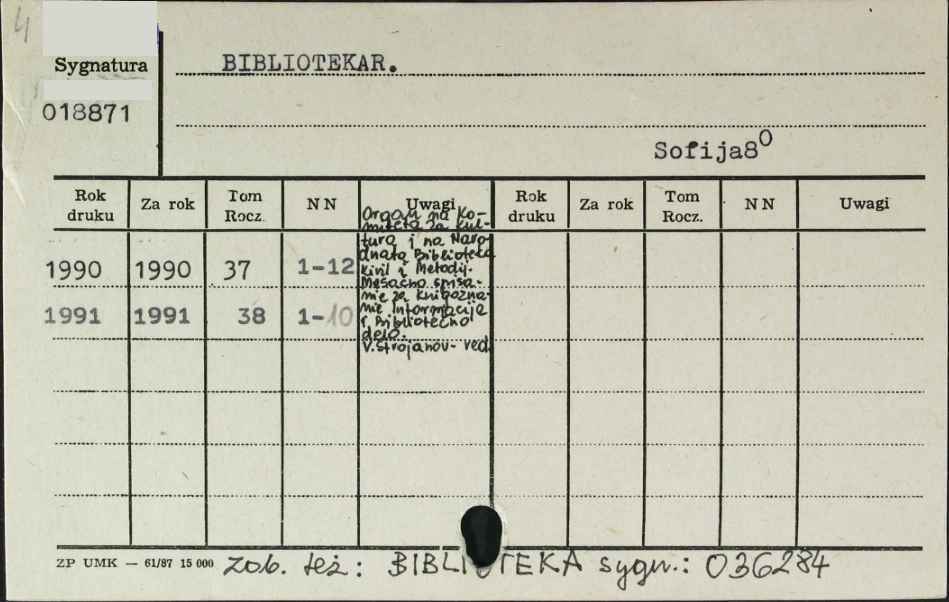 4
Sygnatura
BIBLIOTEKAR.
018871
Sofija8⁰
Rok druku Za rok Tom Rocz. NN Uwagi Rok druku Za rok Tom Rocz. NN Uwagi
Organ na Ko-
miteta za kul-
tura i na Naro-
dnata Biblioteka
Kiril i Metodij.
Mesačno spisa-
nie za knigozna-
nie informacija
i bibliotečno
delo.
V. Strojanov- red.
1990 1990 37 1-12
1991 1991 38 1-10
ZP UMK — 61/87 15 000
zob. też: BIBLIOTEKA sygn.: 036284